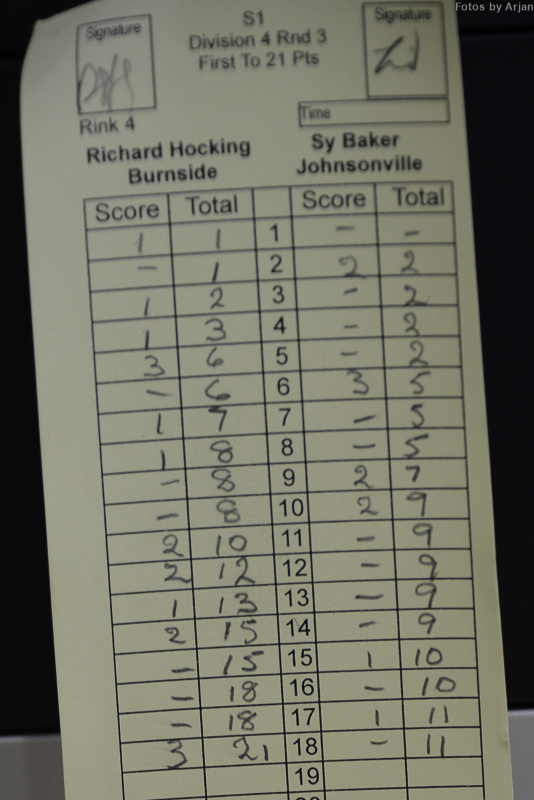 Fotos by Arjan
S1
Signature
Signature
Division 4 Rnd 3
First To 21 Pts
Time
Rink 4
Richard Hocking
Sy Baker
Burnside
Johnsonville
Score Total Score Total
1 1 1 - -
- 1 2 2 2
1 2 3 - 2
1 3 4 - 2
3 6 5 - 2
- 6 6 3 5
1 7 7 - 5
1 8 8 - 5
- 8 9 2 7
- 8 10 2 9
2 10 11 - 9
2 12 12 - 9
1 13 13 - 9
2 15 14 - 9
- 15 15 1 10
- 18 16 - 10
- 18 17 1 11
3 21 18 - 11
19